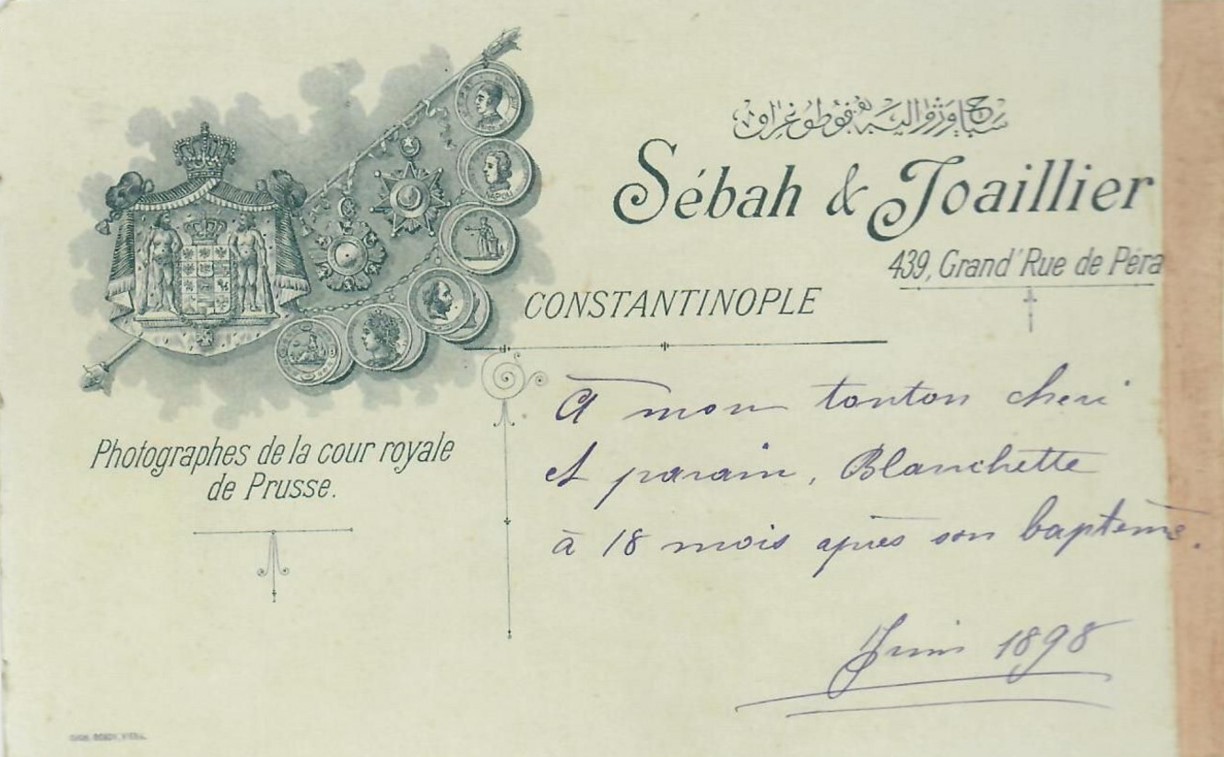 سباح و ژوالیه فوطوغراف
Sébah & Joaillier
439, Grand' Rue de Péra
CONSTANTINOPLE
Photographes de la cour royale
de Prusse.
A mon tonton cheri
et parain, Blanchette
à 18 mois après son baptême.
Juin 1898